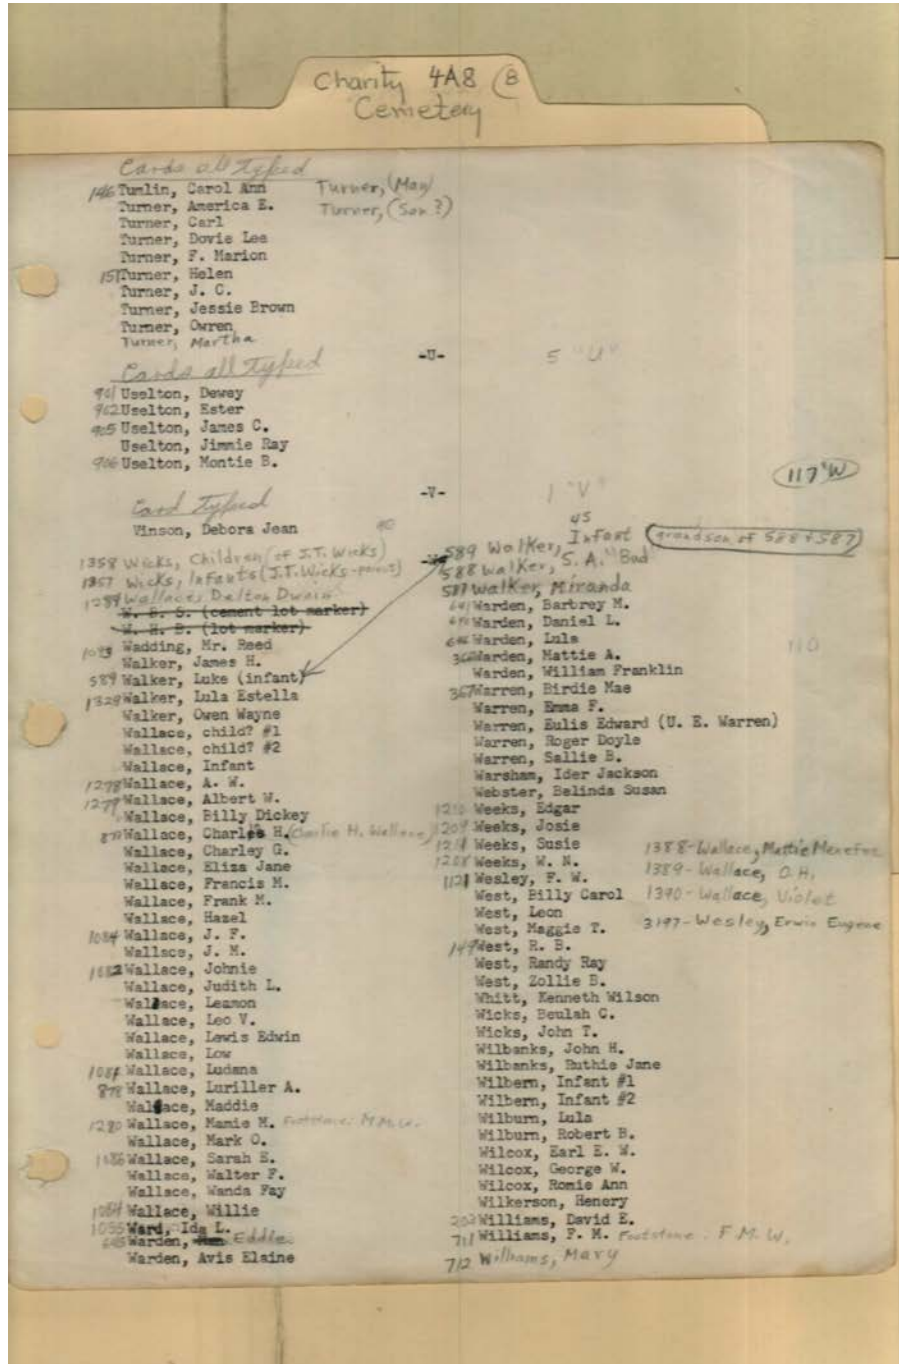 Charity 4A8 (B
Cemetery
Cards all typed
146 Tumlin, Carol Ann
Turner, America E.
Turner, Carl
Turner, Dovie Lee
Turner, F. Marion
151 Turner, Helen
Turner, J. C.
Turner, Jessie Brown
Turner, Owren
Turner, Martha
Turner, (May)
Turner, (Son?)
-U-
5 "U"
Cards all typed
901 Uselton, Dewey
902 Uselton, Ester
905 Uselton, James C.
Uselton, Jimmie Ray
906 Uselton, Montie B.
-V-
1 "V"
117 "W"
Card typed
Vinson, Debora Jean
1358 Wicks, Children (of J.T. Wicks)
1357 Wicks, Infants (J.T. Wicks-parent)
1289 Wallace, Delton Dwain
W. B. S. (cement lot marker)
W. H. B. (lot marker)
1093 Wadding, Mr. Reed
Walker, James H.
589 Walker, Luke (infant)
1329 Walker, Lula Estella
Walker, Owen Wayne
Wallace, child? #1
Wallace, child? #2
Wallace, Infant
1278 Wallace, A. W.
1279 Wallace, Albert W.
Wallace, Billy Dickey
879 Wallace, Charles H. (Charlie H. Wallace)
Wallace, Charley G.
Wallace, Eliza Jane
Wallace, Francis M.
Wallace, Frank M.
Wallace, Hazel
1084 Wallace, J. F.
Wallace, J. M.
1082 Wallace, Johnie
Wallace, Judith L.
Wallace, Leamon
Wallace, Leo V.
Wallace, Lewis Edwin
Wallace, Low
1081 Wallace, Ludana
878 Wallace, Luriller A.
Wallace, Maddie
1280 Wallace, Mamie M. Footstone: M.M.W.
Wallace, Mark O.
1086 Wallace, Sarah E.
Wallace, Walter F.
Wallace, Wanda Fay
1084 Wallace, Willie
1055 Ward, Ida L.
645 Warden, Eddie
Warden, Avis Elaine
45
589 Walker, Infant (grandson of 588 & 587)
588 Walker, S. A. "Bud
587 Walker, Miranda
641 Warden, Barbrey M.
Warden, Daniel L.
Warden, Lula
Warden, Mattie A.
Warden, William Franklin
367 Warren, Birdie Mae
Warren, Emma F.
Warren, Eulis Edward (U. E. Warren)
Warren, Roger Doyle
Warren, Sallie B.
Warsham, Ider Jackson
Webster, Belinda Susan
1210 Weeks, Edgar
1209 Weeks, Josie
1211 Weeks, Susie
1208 Weeks, W. N.
1121 Wesley, F. W.
West, Billy Carol
West, Leon
West, Maggie T.
149 West, R. B.
West, Randy Ray
West, Zollie B.
Whitt, Kenneth Wilson
Wicks, Beulah C.
Wicks, John T.
Wilbanks, John H.
Wilbanks, Ruthie Jane
Wilbern, Infant #1
Wilbern, Infant #2
Wilburn, Lula
Wilburn, Robert B.
Wilcox, Earl E. W.
Wilcox, George W.
Wilcox, Romie Ann
Wilkerson, Henery
202 Williams, David E.
711 Williams, F. M. Footstone: F.M.W.
712 Williams, Mary
110
1388-Wallace, Mattie Menefee
1389-Wallace, O.H.
1390-Wallace, Violet
3197-Wesley, Erwin Eugene